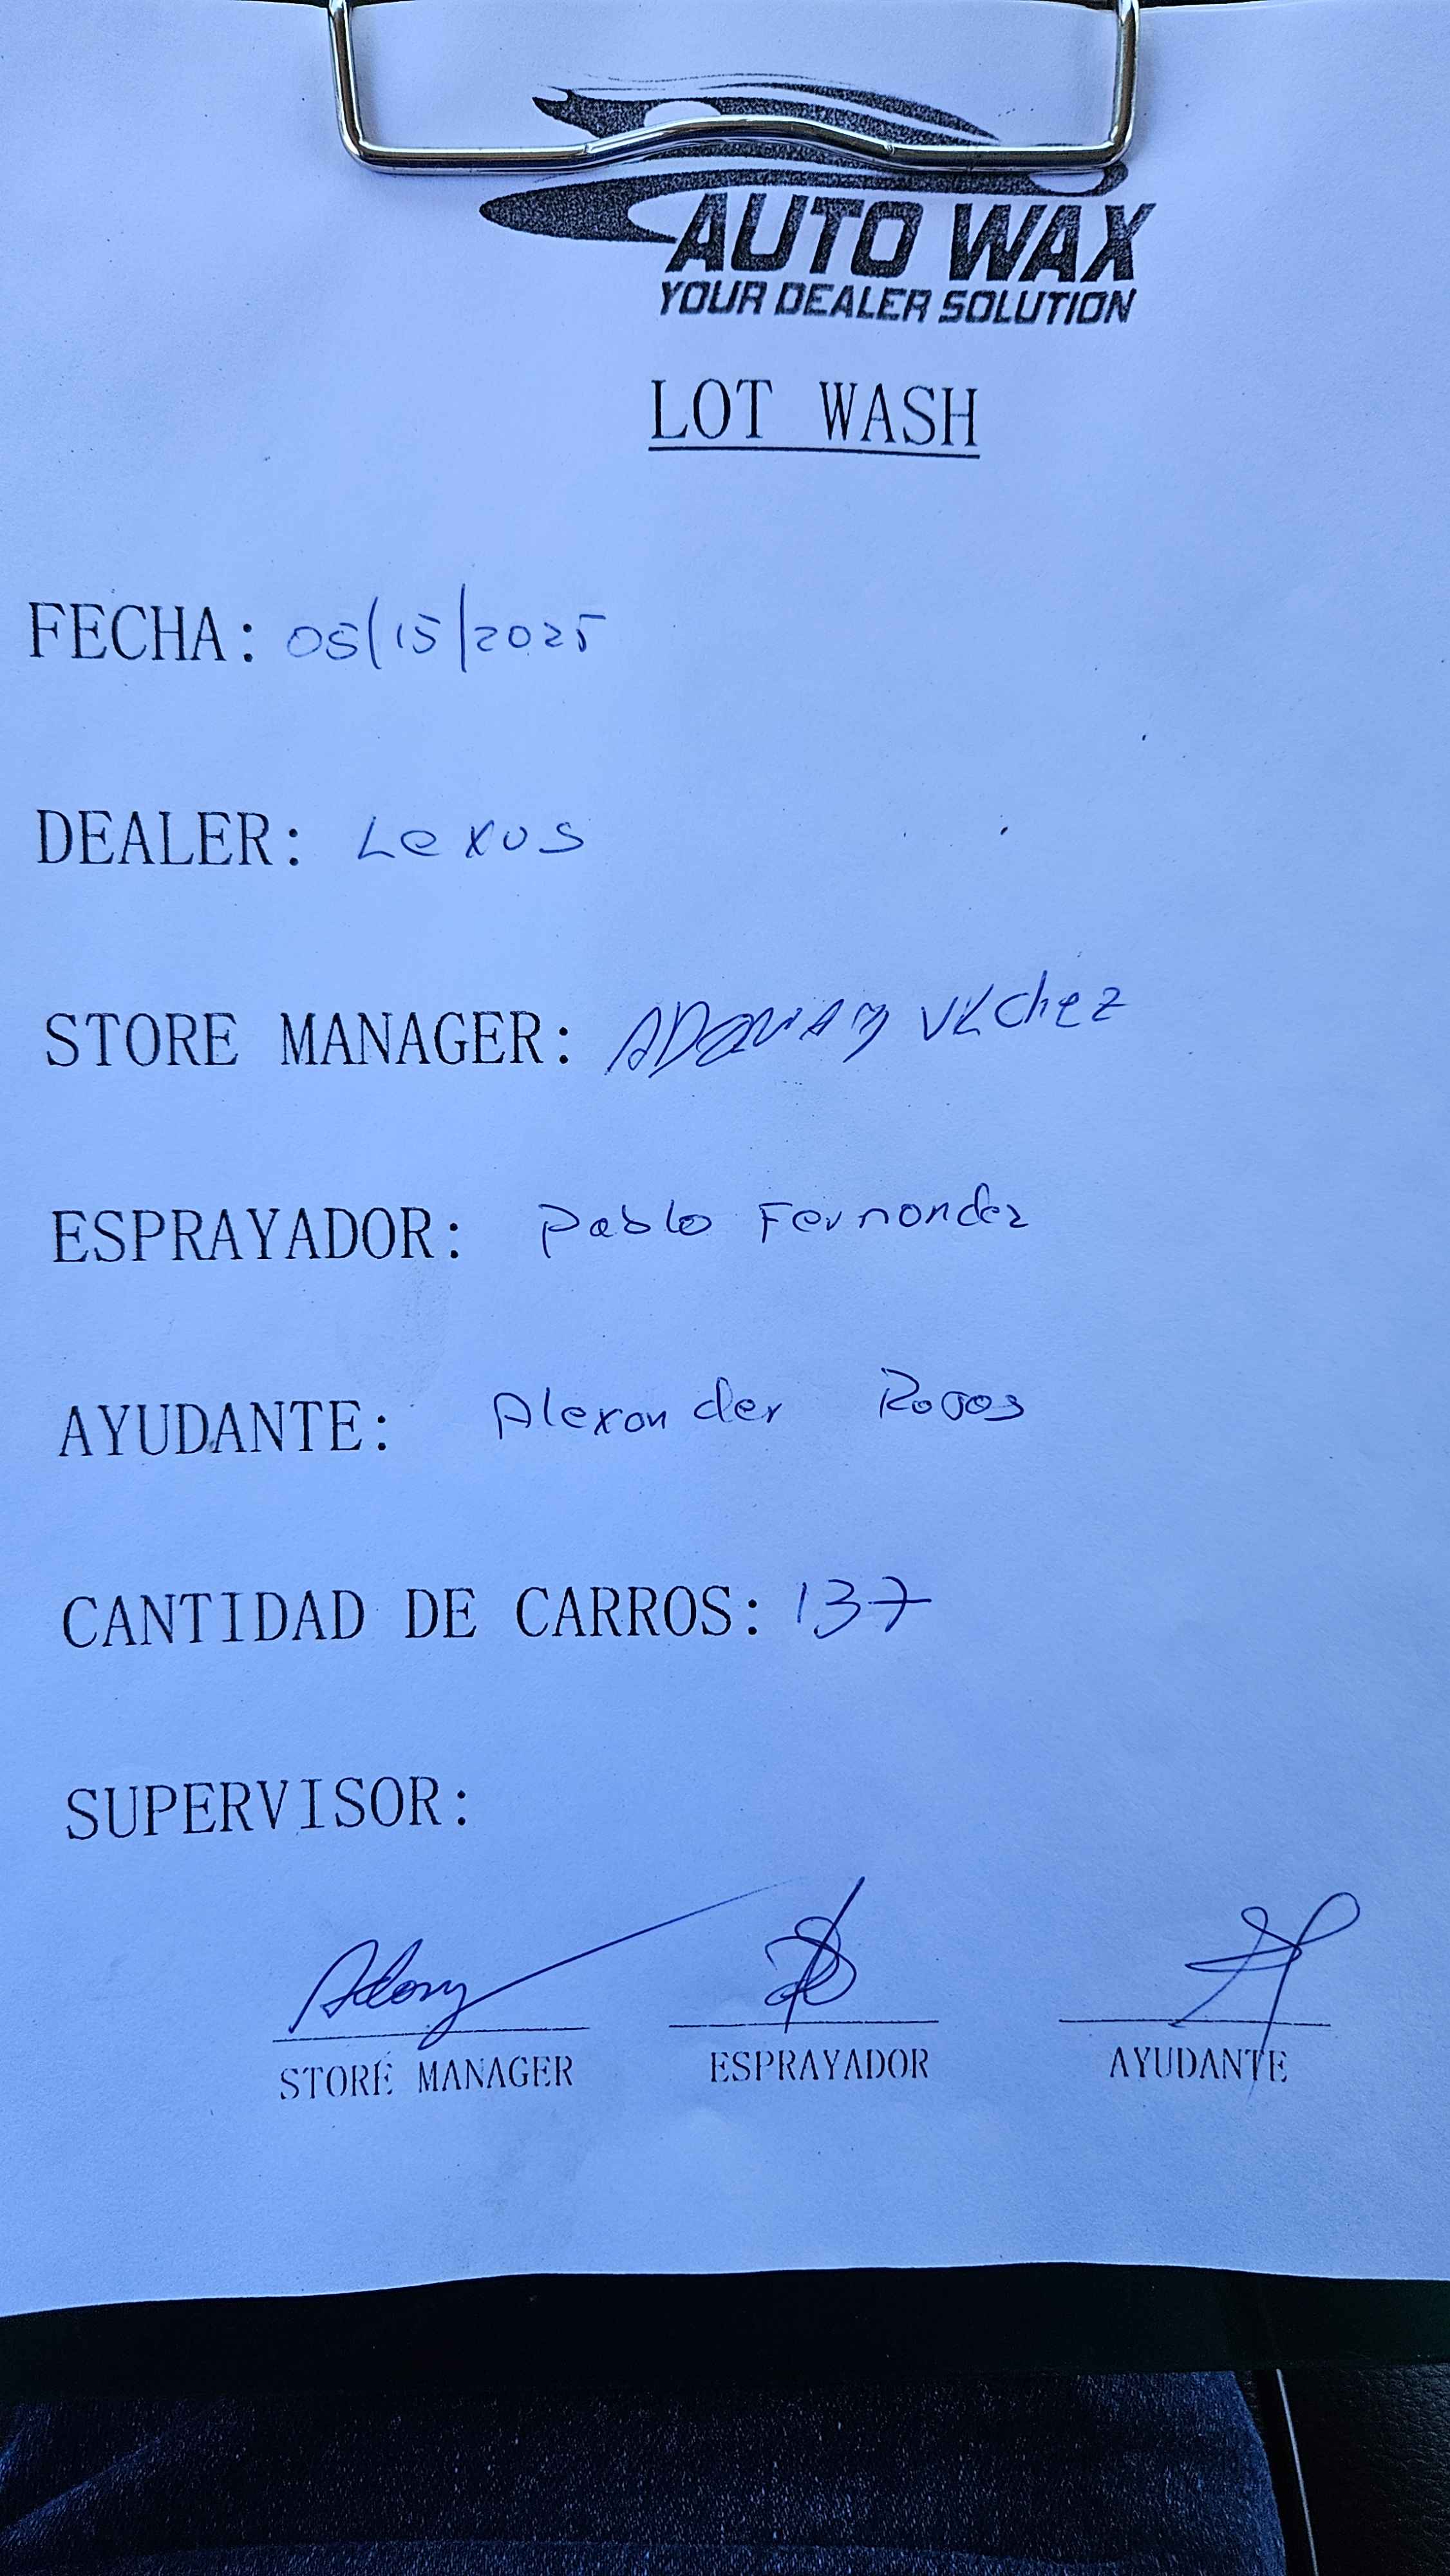 AUTO WAX
YOUR DEALER SOLUTION
LOT WASH
FECHA: 05/15/2025
DEALER: Lexus
STORE MANAGER: Vilchez
ESPRAYADOR: Pablo Fernandez
AYUDANTE: Alexander Rojas
CANTIDAD DE CARROS: 137
SUPERVISOR:
STORE MANAGER ESPRAYADOR AYUDANTE